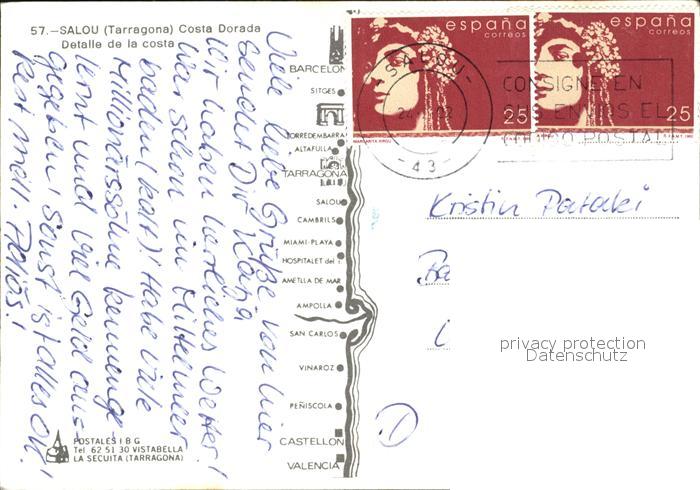 57.-SALOU (Tarragona) Costa Dorada
Detalle de la costa
Viele liebe Grüße von hier
sendet Dir Katja
Wir haben herrliches Wetter!
War schon im Mittelmeer
baden (kalt)! Habe viele
Millionärssöhne kennenge-
lernt und viel Geld aus-
gegeben! Sonst ist alles OK!
Rest mdl. Adiós!
BARCELONA
SITGES
TORREDEMBARRA
ALTAFULLA
TARRAGONA
SALOU
CAMBRILS
MIAMI-PLAYA
HOSPITALET del I.
AMETLLA DE MAR
AMPOLLA
SAN CARLOS
VINAROZ
PEÑISCOLA
CASTELLON
VALENCIA
POSTALES I B G
Tel 62 51 30 VISTABELLA
LA SECUITA (TARRAGONA)
españa
correos
25
MARGARITA XIRGU
españa
correos
25
SALOU
43
CONSIGNE EN
SUS ENVIOS EL
CODIGO POSTAL
Kristin Pataki
Ba
privacy protection
Datenschutz
D